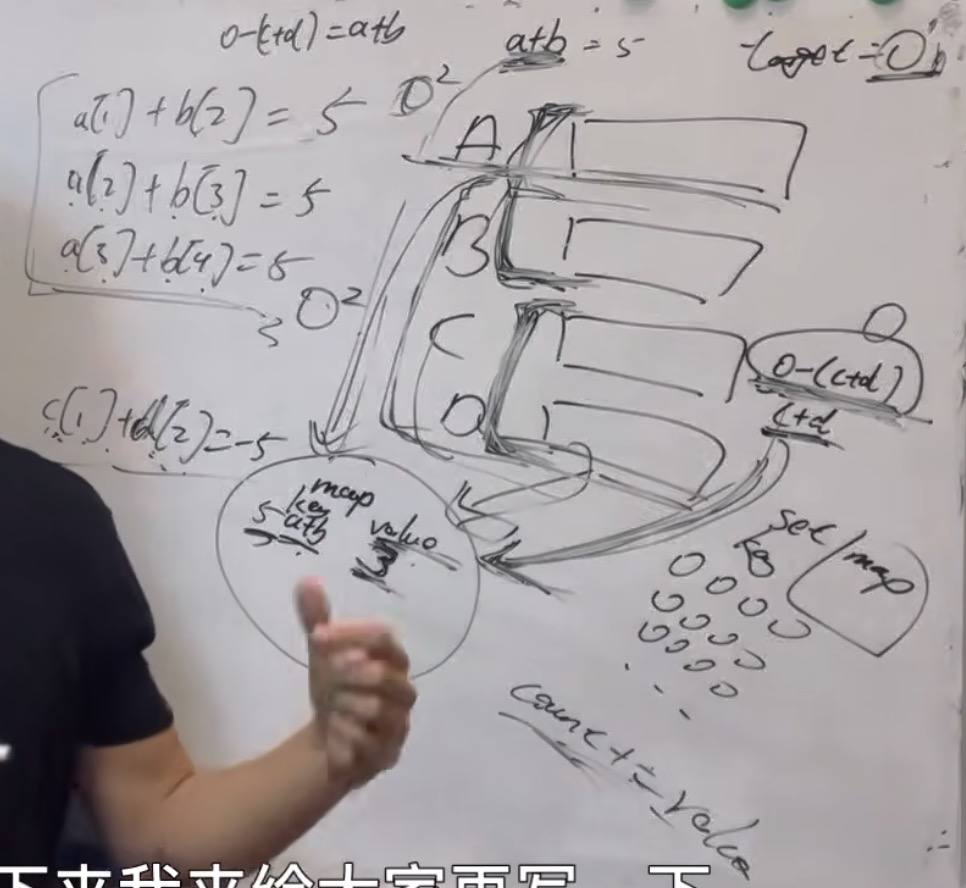 0-(c+d)=a+b
a+b=5
target=0
a[1]+b[2]=5
O²
a[2]+b[3]=5
a[3]+b[4]=5
O²
A
B
C
D
0-(c+d)
c+d
c[1]+d[2]=-5
map
key value
5 a+b 3
set/map
count+=value
下来我来给大家再写一下